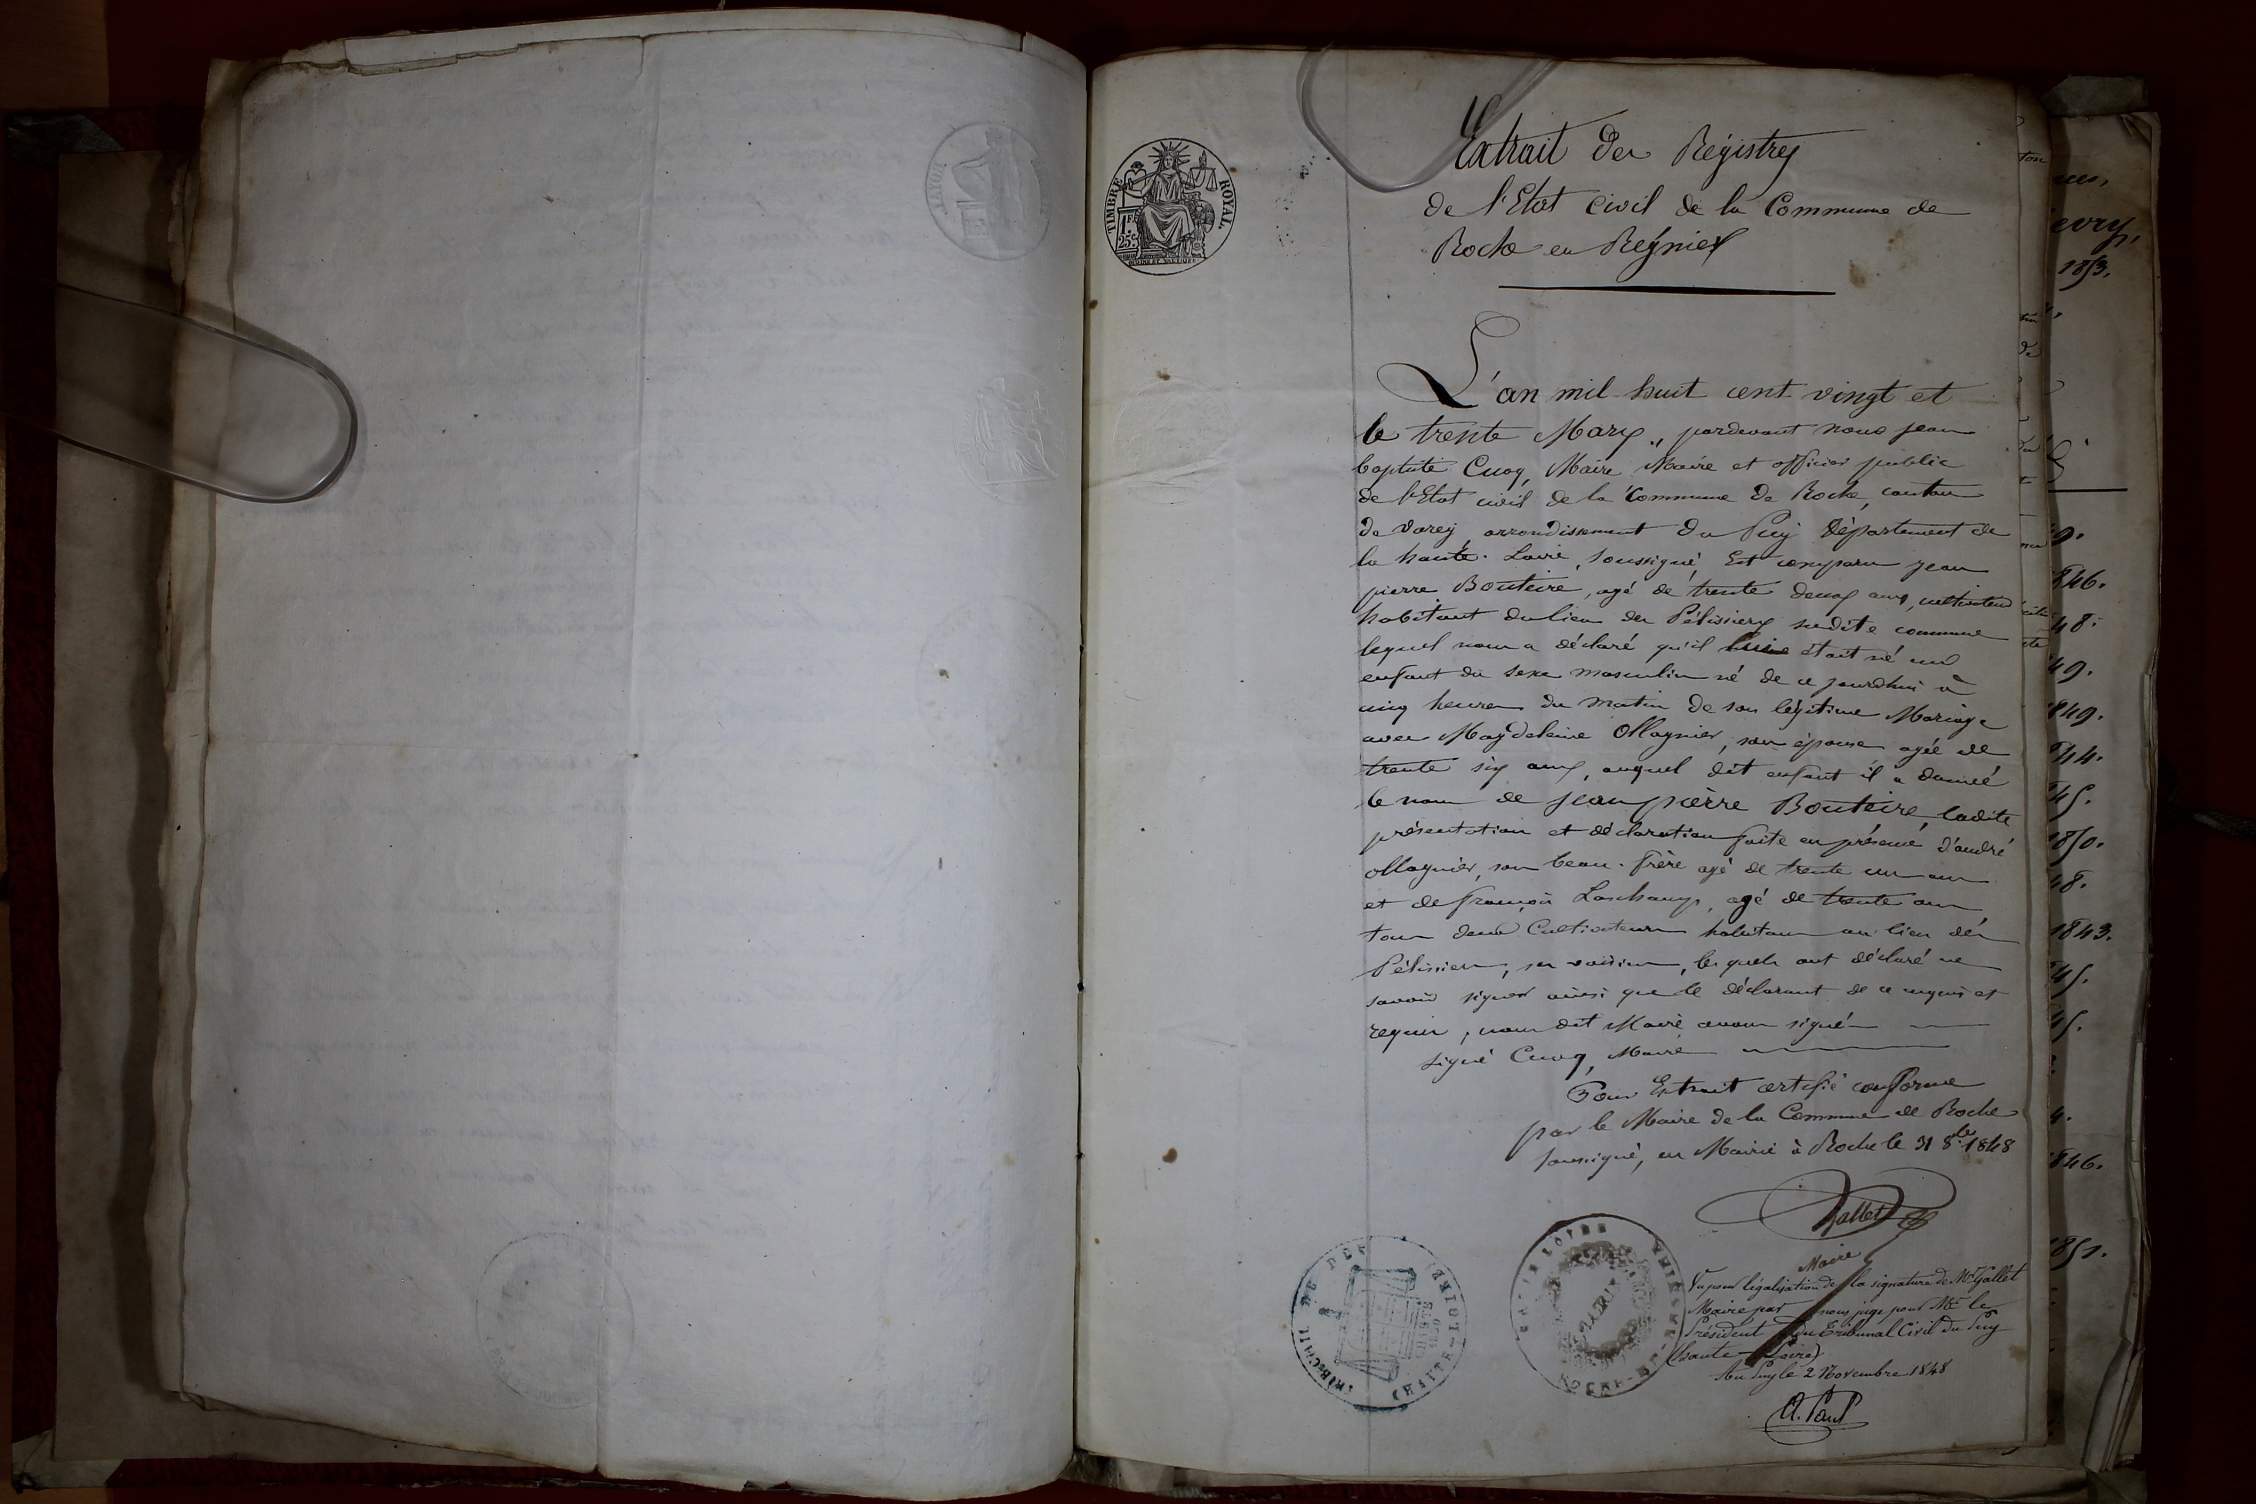 TIMBRE ROYAL
1 FR
25 C
Extrait des Régistres
de l'Etat Civil de la Commune de
Roche en Régnier
L'an mil huit cent vingt et
le trente Mars, pardevant nous jean
baptiste Cuoq, Maire Maire et officier public
de l'Etat civil de la Commune de Roche, canton
de vorey arrondissement du Puy Département de
la haute-Loire, soussigné, Est comparu jean
pierre Bouteire, agé de trente deux ans, cultivateur
habitant du lieu des Pélissiers susdite commune
lequel nous a déclaré qu'il était né un
enfant du sexe masculin né de ce jourdhui à
cinq heures du matin de son légitime Mariage
avec Magdeleine Ollagnier, son épouse agée de
trente six ans, auquel dit enfant il a donné
le nom de jean pierre Bouteire, ladite
présentation et déclaration faite en présence d'andré
ollagnier, son beau-frère agé de trente un ans
et de françois Laschamp, agé de trente ans,
tous deux Cultivateurs habitans au lieu dés
Pélissiers, ses voisins, lesquels ont déclaré ne
savoir signer ainsi que le déclarant de ce enquis et
requis, nous dit Maire avons signé
signé Cuoq, Maire
Pour Extrait certifié conforme
par le Maire de la Commune de Roche
soussigné, en Mairie à Roche le 31 8bre 1848
Gallet
Maire
Vu pour légalisation de la signature de Mr Gallet
Maire par nous juge pour Mr le
Président du Tribunal Civil du Puy
(haute-Loire)
Au Puy le 2 Novembre 1848
A. Paul
TRIBUNAL DE
(HAUTE-LOIRE)
MAIRIE
1853.
1846.
48.
49.
1849.
1844.
45.
1850.
48.
1843.
45.
1846.
1851.